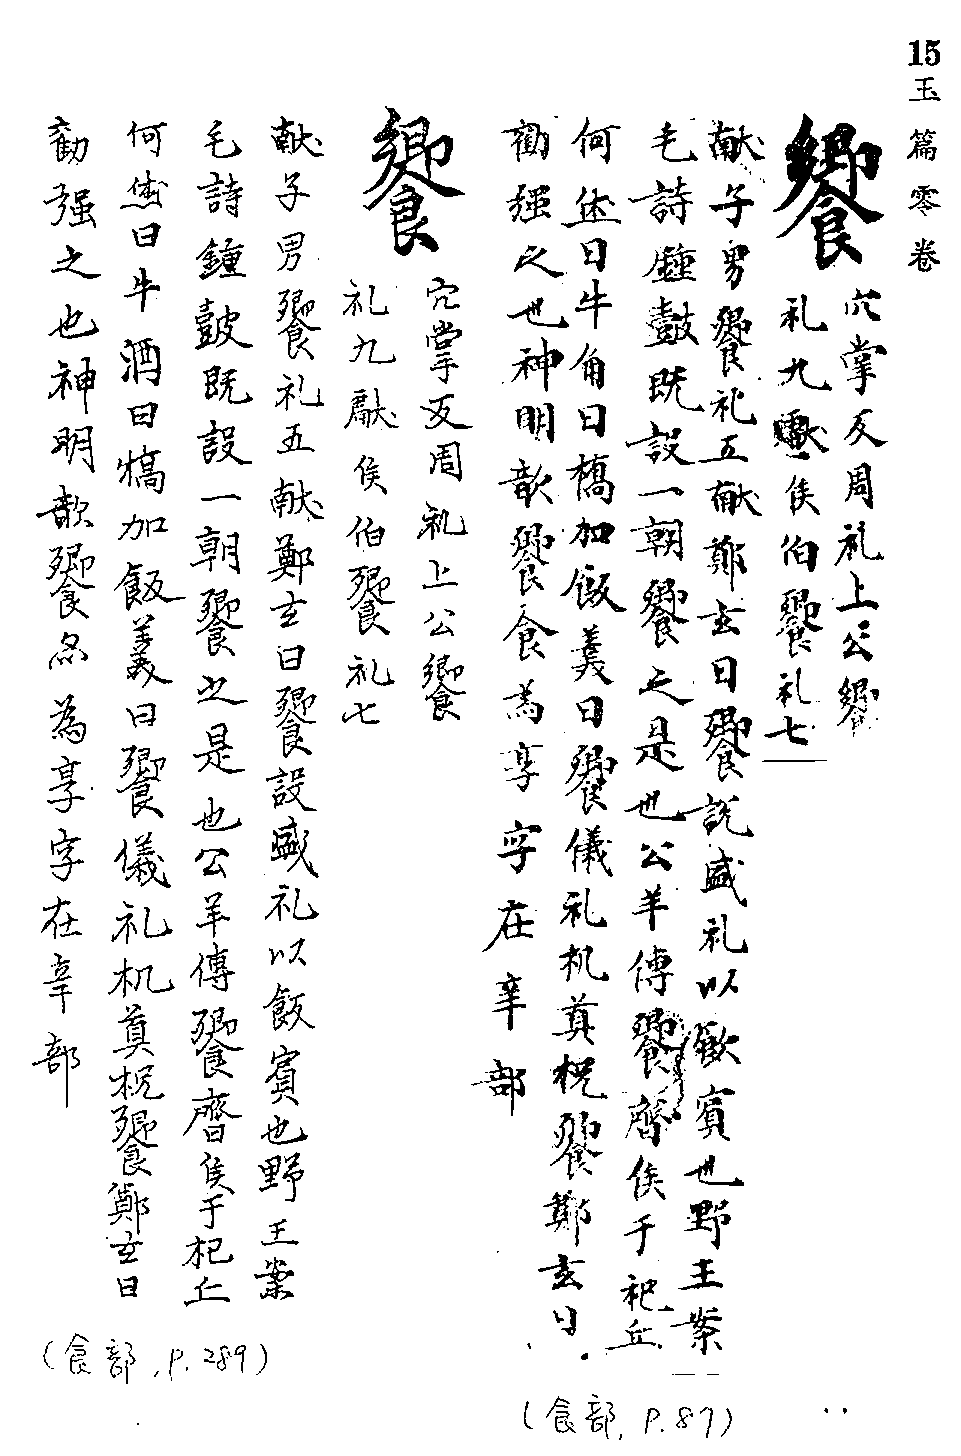 15
玉篇零卷
饗
穴掌反周礼上公饗
礼九獻侯伯饗礼七
献子男饗礼五献鄭玄曰饗説盛礼以飲賓也野王案
毛詩鍾鼓既設一朝饗之是也公羊傳饗齊侯于祀丘
何休曰牛角曰槁加飯義曰饗儀礼机奠柷饗鄭玄曰
勸强之也神明歆饗食為享字在辛部
(食部, P.87)
饗
穴掌反周礼上公饗
礼九獻侯伯饗礼七
献子男饗礼五献鄭玄曰饗設盛礼以飯賓也野王案
毛詩鍾鼓既設一朝饗之是也公羊傳饗齊侯于杞丘
何曰牛酒曰犒加飯義曰饗儀礼机奠柷饗鄭玄曰
勸强之也神明歆饗為享字在辛部
(食部, P.289)